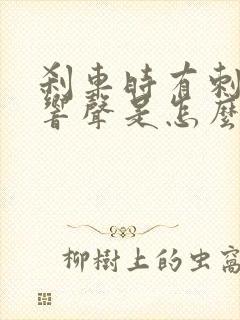 刹車時有刺
響聲是怎麽
柳樹上的虫窩